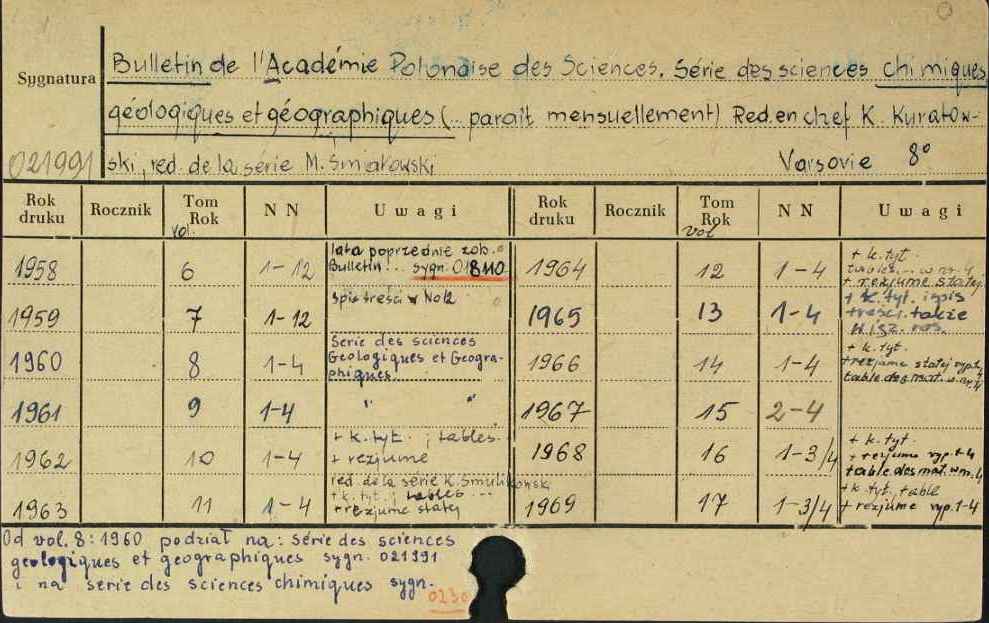 Sygnatura
Bulletin de l'Académie Polonaise des Sciences. Série des sciences chimiques
géologiques et géographiques (... parait mensuellement) Red. en chef K. Kuratow-
021991 ski, red. de la série M. Śmiałowski Varsovie 8°
Rok druku Rocznik Tom Rok vol. N N Uwagi Rok druku Rocznik Tom Rok vol N N Uwagi
1958 6 1-12 lata poprzednie zob. Bulletin... sygn. 018110
1959 7 1-12 spis treści w No12
1960 8 1-4 Serie des sciences Geologiques et Geographiques.
1961 9 1-4 " "
1962 10 1-4 + k. tyt. i tables. + rezjume
1963 11 1-4 red. de la série K. Smulikowski + k. tyt. i tables ... + rezjume statej
1964 12 1-4 + k. tyt. + rezjume statej
1965 13 1-4 + k. tyt. i spis treści także
1966 14 1-4 + k. tyt. + rezjume statej vyp. 1-4 table des mat. w nr. 4
1967 15 2-4
1968 16 1-3/4 + k. tyt. + rezjume vyp. 1-4 table des mat. w nr. 4
1969 17 1-3/4 + k. tyt., table + rezjume vyp. 1-4
Od vol. 8: 1960 podział na: série des sciences
geologiques et geographiques sygn. 021991
i na serie des sciences chimiques sygn.